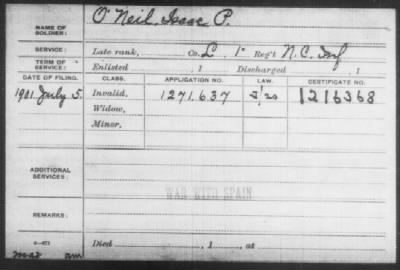 NAME OF SOLDIER: O'Neil, Isaac P.
SERVICE: Late rank, Co. L, 1" Reg't N.C. Inf
TERM OF SERVICE: Enlisted , 1 Discharged , 1
DATE OF FILING. CLASS. APPLICATION NO. CERTIFICATE NO.
1901 July 5. Invalid, 1271.637 1216368
Widow,
Minor,
ADDITIONAL SERVICES:
WAR WITH SPAIN
REMARKS:
Died , 1 , at